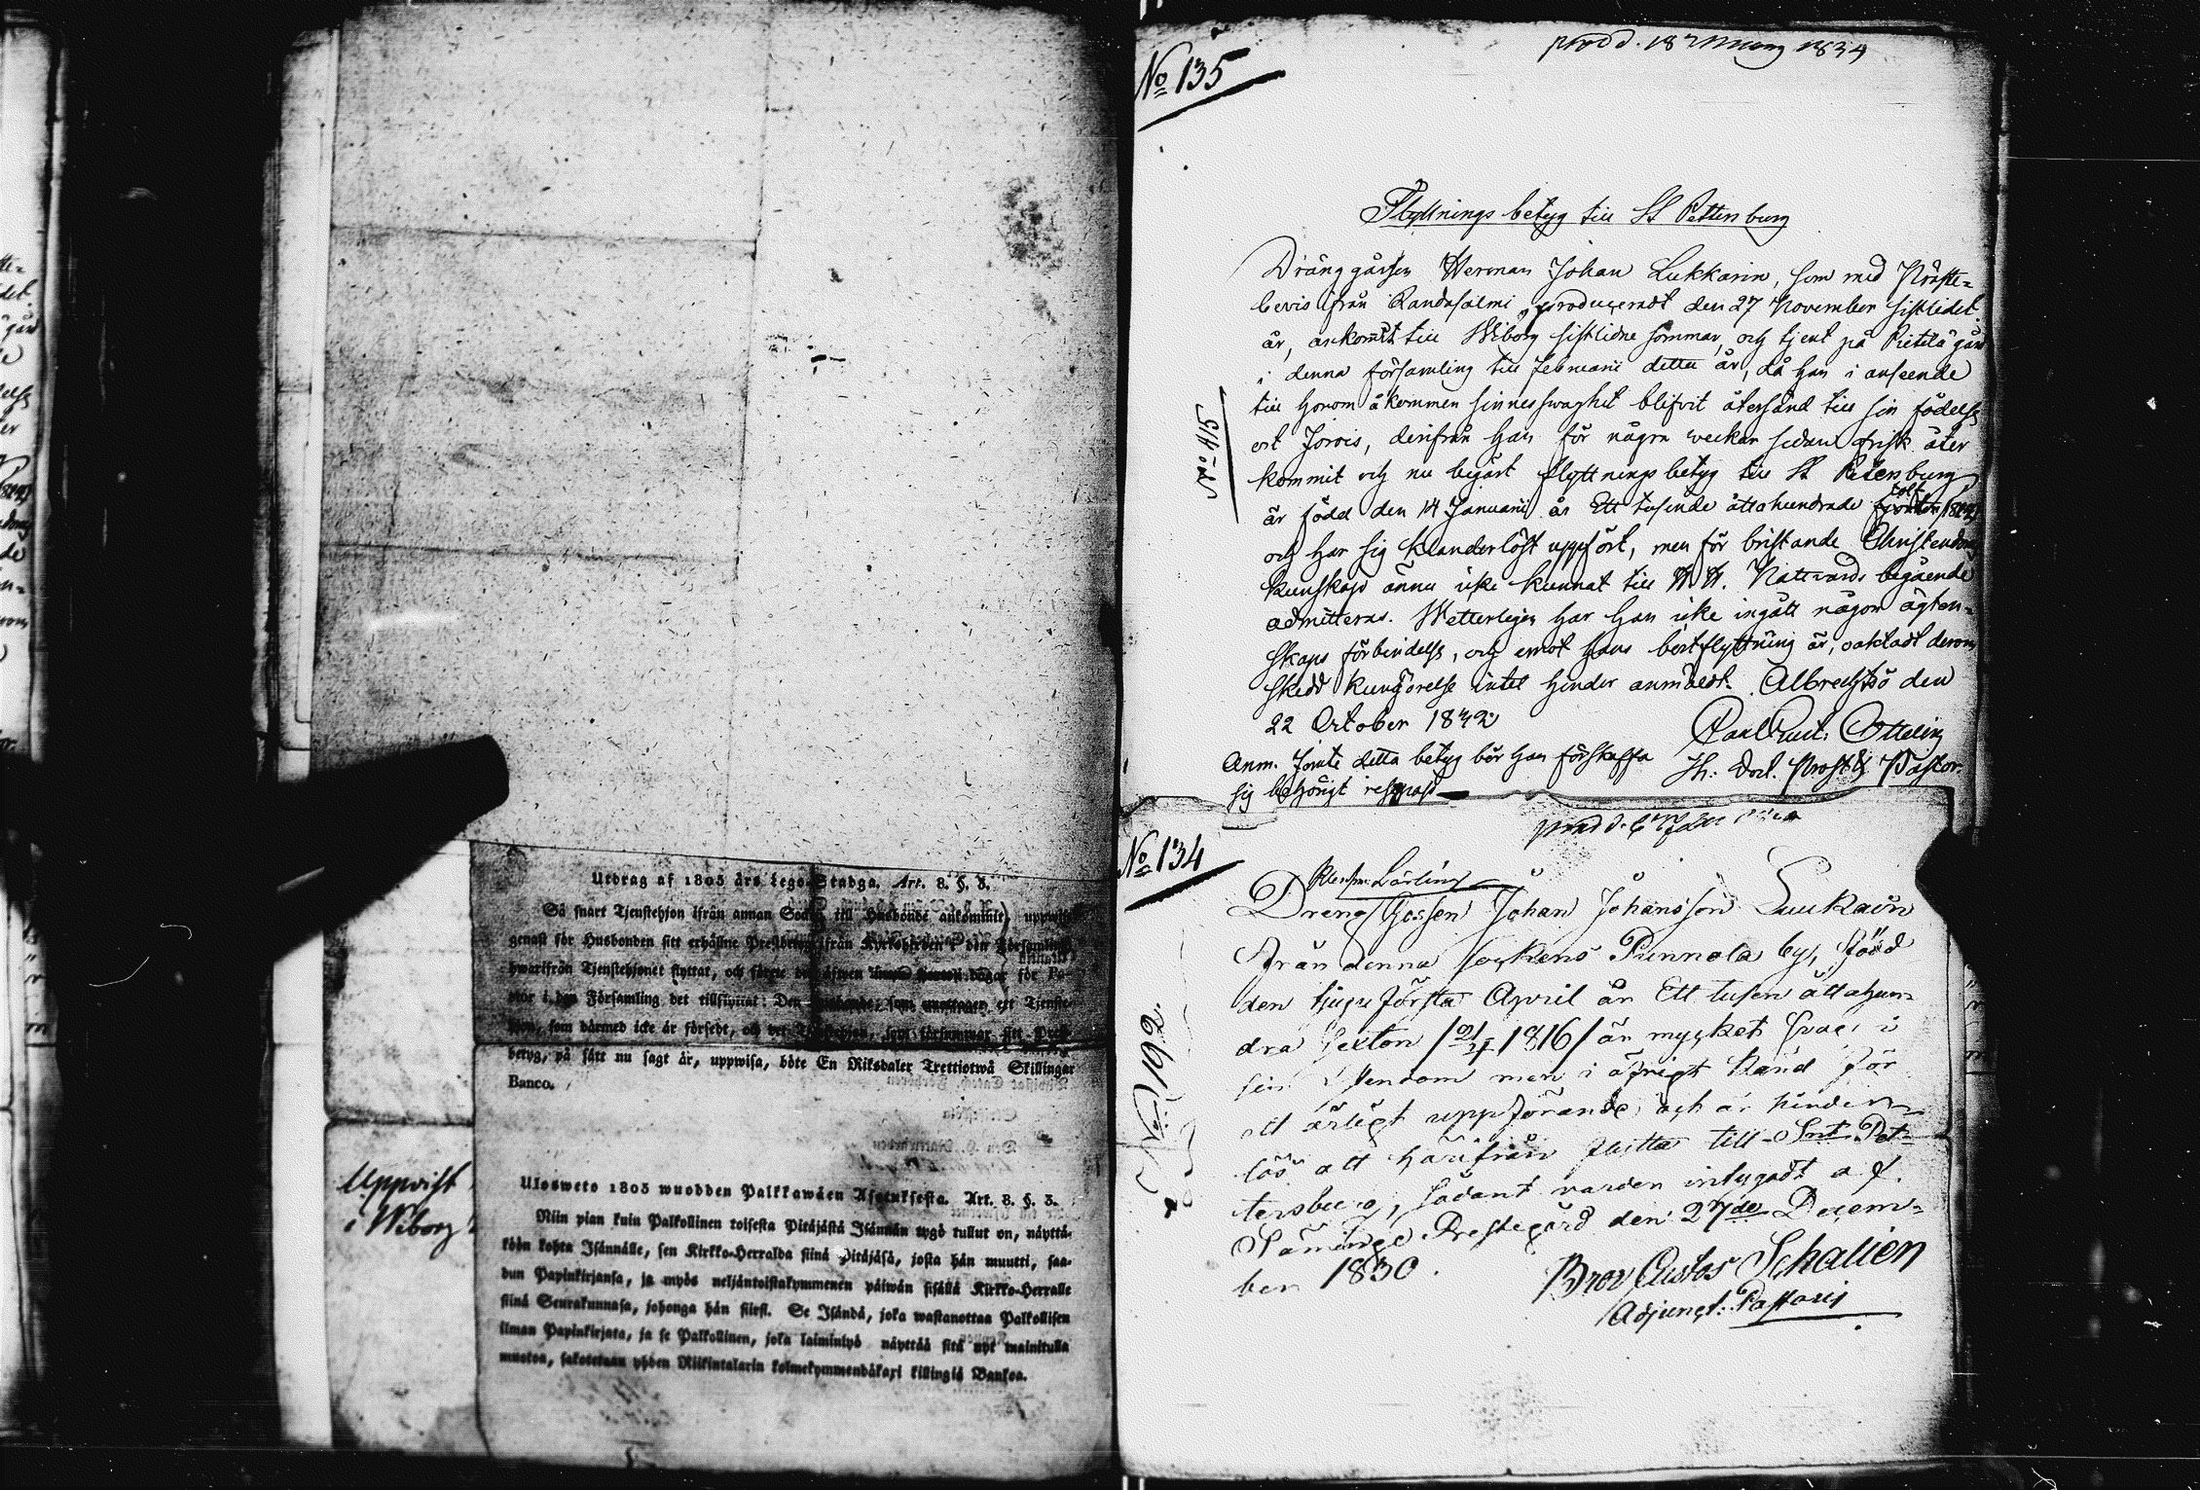 Utdrag af 1805 års Lego-Stadga. Art. 8. §. 3.
Så snart Tjenstehjon ifrån annan Socken till Husbonde ankommit, uppwise
genast för Husbonden sitt erhållne Prestbetyg ifrån Kyrkoherden i den Församling,
hwarifrån Tjenstehjonet flyttat, och för Pa-
stor i den Församling det tillflyttat: Den Husbonde, som emottager ett Tjenste-
hjon, som därmed icke är försedt, och det Tjenstehjon, som försummar sitt Prest-
betyg, på sätt nu sagt är, uppwisa, böte En Riksdaler Trettiotwå Skillingar
Banco.
Uppvist
i Wiborg
Ulosweto 1805 wuoden Palkkawäen Asetuksesta. Art. 8. §. 3.
Niin pian kuin Palkollinen toisesta Pitäjästä Isännän tygö tullut on, näyttä-
köön kohta Isännälle, sen Kirkko-Herralda siinä Pitäjäsä, josta hän muutti, saa-
dun Papinkirjansa, ja myös neljäntoistakymmenen päiwän sisällä Kirkko-Herralle
siinä Seurakunnasa, johonga hän siirsi. Se Isändä, joka wastanottaa Palkollisen
ilman Papinkirjata, ja se Palkollinen, joka laiminlyö näyttää sitä nyt mainitulla
muotoa, sakotetaan yhden Riikintalarin kolmekymmendäkaxi killingiä Bankoa.
No 135
prod d. 18 1834
Flyttnings betyg till St Pettersburg
Dränggåssen Herman Johan Lukkarin, som med Präste-
bevis från Randasalmi, produceradt den 27 November sistledet
år, ankommit till Wiborg sistlidne sommar, och tjent på Pietilä gård
i denna församling till Februarii detta år, då han i anseende
till honom åkommen sinnesswaghet blifvit återsänd till sin födelse
ort Jorois, derifrån han för några weckor sedan frisk åter
kommit och nu begärt flyttnings betyg till St Petersburg
är född den 14 Januarii år Ett tusende åttahundrade tolf
och har sig klanderlöst uppfört, men för bristande Christendoms
kunskap ännu icke kunnat till H. H. Nattvards begående
admitteras. Wetterligen har han icke ingått någon ägten-
skaps förbindelse, och emot hans bortflyttning är, oaktadt derom
skedd kungörelse intet hinder anmäldt. Albrechtsö den
22 October 1832
Carl Gust. Ottelin
Th: Doct. Prost & Pastor.
Anm. Jemte detta betyg bör han förskaffa
sig behörigt respass
No 415
No 134
prod d. 6
Lärling
Dreng Gossen Johan Johansson Luukain
Från denna Sockens Punnola by, född
den tjuguförsta April år Ett tusen åttahun-
dra Sexton /21/4 1816/ är mycket svag i
sin men i öfrigt känd för
ett ärligt uppförande, och är hinder-
lös att härifrån flytta till Snt Pet-
tersburg, sådant varder intygadt af.
Säminge Prestegård den 27de Decem-
ber 1830.
Bror Gustav Schalien
Adjunct: Pastoris
No 192